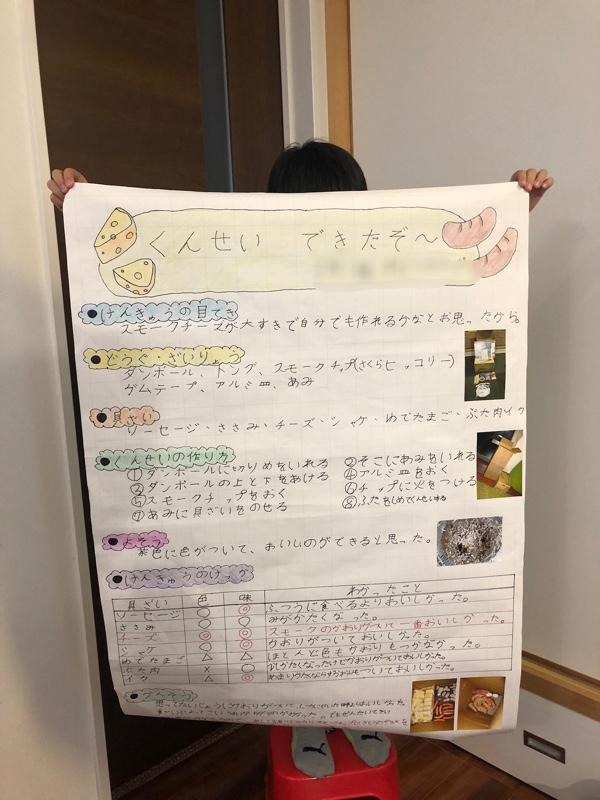 くんせい できたぞ〜
●けんきゅうの目てき
スモークチーズが大すきで自分でも作れるかなとお思ったから。
●どうぐ・ざいりょう
ダンボール、トング、スモークチップ(さくらヒッコリー)
ゲムテープ、アルミ皿、あみ
●具ざい
ソーセージ・ささみ・チーズ・シャケ・ゆでたまご・ぶた肉イカ
●くんせいの作り方
①ダンボールに切りめをいれる
②そこにあみをいれる
③ダンボールの上と下をあける
④アルミ皿をおく
⑤スモークチップをおく
⑥チップに火をつける
⑦あみに具ざいをのせる
⑧ふたをしめて
●よそう
茶色に色がついて、おいしのができると思った。
●けんきゅうのけっか
具ざい 色 味 わかったこと
ソーセージ ○ ◎ ふつうに食べるよりおいしかった。
ささみ ○ ○ みがかたくなった。
チーズ ◎ ◎ スモークのかおりがついて一番おいしかった。
シャケ ○ ◎ かおりがついておいしかった。
ゆでたまご △ △ ほとんど色もかおりもつかなかった。
ぶた肉 × ○ かたくなったけどかおりがついておいしかった。
イカ △ ◎ ついておいしかった。
●かんそう